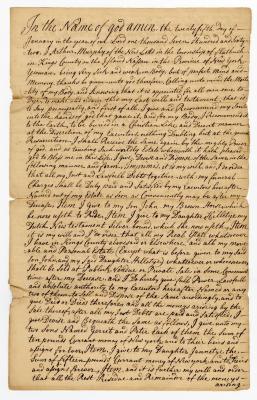 In the Name of god amen the twenty fifth day of
January in the year of our Lord one thousand Seven Hundred and Sixty
two, I Arthur Murphy of the New Lots in the township of flatbush
in Kings County in the Island Nassau in the Province of New York
Yeoman, being very Sick and weak in Body, but of perfect Mind and
Memory, thanks be given unto god therefor, Calling unto mind the Mortal
ity of my Body, and knowing that it is appointed for all men once to
Dye, do make and ordain this my Last will and testament, that is
to Say principally, and first of all, I give and Recommend my Soul
into the hands of god that gave it, and for my Body, I Recommend it
to the Earth, to be buried in a Christian like and Decent manner,
at the Discretion of my Executors, nothing Doubting but at the general
Resurrection, I Shall Receive the Same again by the mighty Power
of god, and as touching Such worldly Estate wherewith it hath pleased
god to bless me in this Life I give, Devise and Dispose of the Same in the
following manner and form. Imprimis, it is my will and I order
that all my Just and Lawfull Debts together with my funeral
Charges shall be Duly paid and Satisfied by my Executors hereafter
Named out of my Estate as Soon as Conveniently may be after my
Decease. Item, I give to my Son John, my Brown Horse which
he now useth to Ride. Item, I give to my Daughter Hilletje my
Dutch New testament
it is my will and I order that all my Real Estate whatsoever
I have in Kings County aforesaid or elsewhere, and all my move
able and Personal Estate (Except what is before given to my said
Son John and my Said Daughter Hilletje) whatsoever or wheresoever
Shall be Sold at Publick Vendue or Private Sale in Some Convenient
time after my Decease, And I Do hereby give full Power Lawfull
and absolute authority to my Executors hereafter Named or any
two of them to Sell and Dispose of the Same accordingly, and to
give Deed or Deeds therefore, and all the moneys arising by the
Sale thereof, after all my Just Debts are paid and Satisfied, I
give Devise and Bequeath the Same as follows, I give unto my
two Sons Named Gerrit and Peter Each of them the Sum of
ten pounds Currant money of New york, and to their heirs and
assigns for Ever, Item, I give to my Daughter Jannetje the
Sum of fifteen pounds Currant money of New york and to heirs
and assigns forever, Item, and it is further my will and order
that all the Rest Residue and Remainder of the moneys
arising